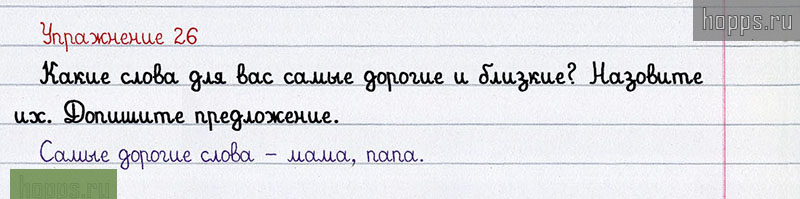 hopps.ru
Упражнение 26
Какие слова для вас самые дорогие и близкие? Назовите
их. Допишите предложение.
Самые дорогие слова – мама, папа.
hopps.ru